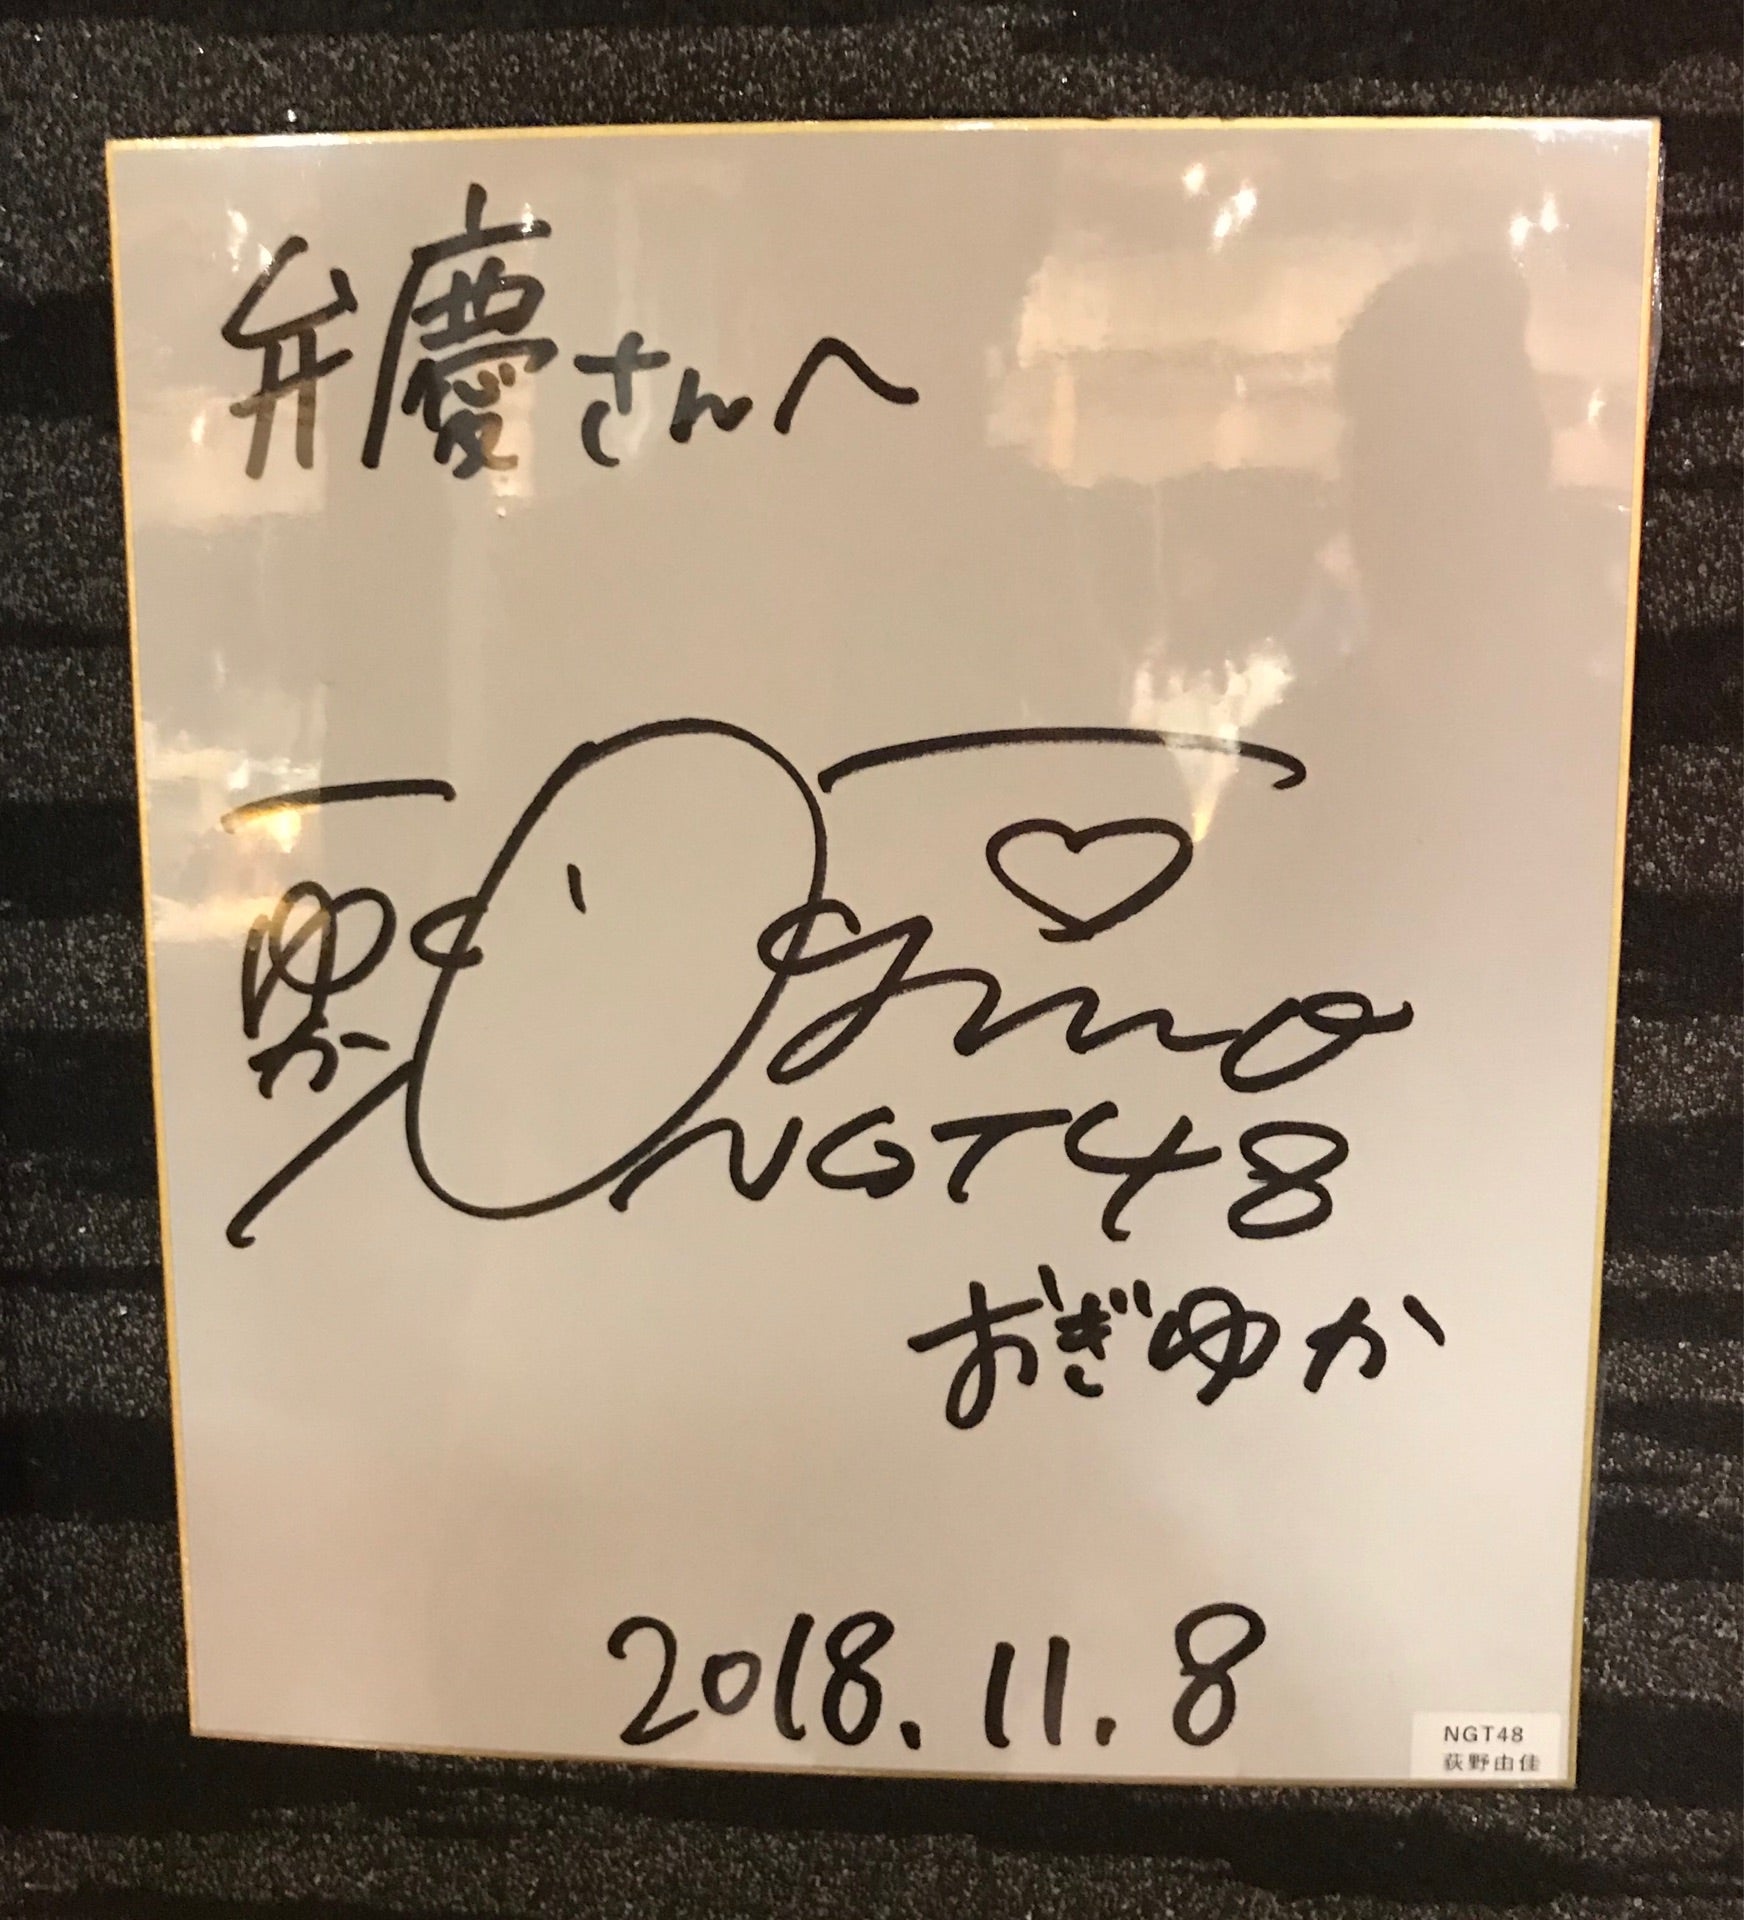 弁慶さんへ
ゆか
Ogino
NGT48
おぎゆか
2018.11.8
NGT48
荻野由佳